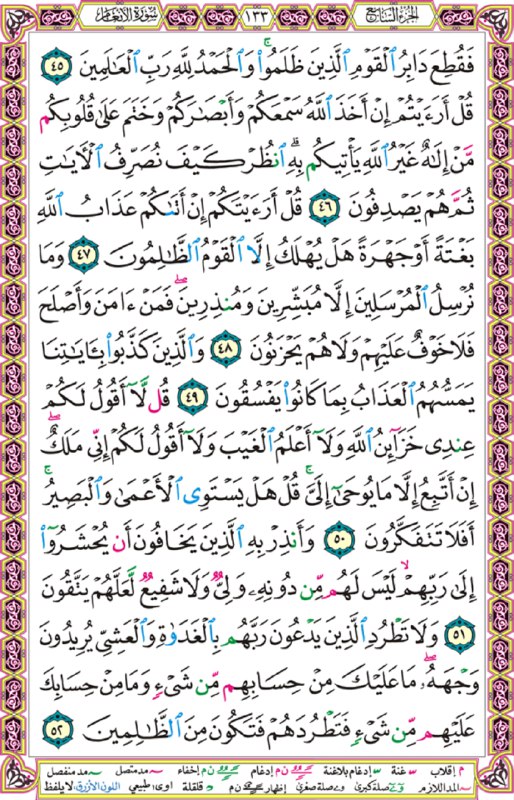 الجزء السابع ١٣٣ سورة الأنعام
فَقُطِعَ دَابِرُ الْقَوْمِ الَّذِينَ ظَلَمُوا۟ ۚ وَالْحَمْدُ لِلَّهِ رَبِّ الْعَـٰلَمِينَ ٤٥
قُلْ أَرَءَيْتُمْ إِنْ أَخَذَ اللَّهُ سَمْعَكُمْ وَأَبْصَـٰرَكُمْ وَخَتَمَ عَلَىٰ قُلُوبِكُم
مَّنْ إِلَـٰهٌ غَيْرُ اللَّهِ يَأْتِيكُم بِهِ ۗ انظُرْ كَيْفَ نُصَرِّفُ الْـَٔايَـٰتِ
ثُمَّ هُمْ يَصْدِفُونَ ٤٦ قُلْ أَرَءَيْتَكُمْ إِنْ أَتَىٰكُمْ عَذَابُ اللَّهِ
بَغْتَةً أَوْ جَهْرَةً هَلْ يُهْلَكُ إِلَّا الْقَوْمُ الظَّـٰلِمُونَ ٤٧ وَمَا
نُرْسِلُ الْمُرْسَلِينَ إِلَّا مُبَشِّرِينَ وَمُنذِرِينَ ۖ فَمَنْ ءَامَنَ وَأَصْلَحَ
فَلَا خَوْفٌ عَلَيْهِمْ وَلَا هُمْ يَحْزَنُونَ ٤٨ وَالَّذِينَ كَذَّبُوا۟ بِـَٔايَـٰتِنَا
يَمَسُّهُمُ الْعَذَابُ بِمَا كَانُوا۟ يَفْسُقُونَ ٤٩ قُل لَّا أَقُولُ لَكُمْ
عِندِى خَزَآئِنُ اللَّهِ وَلَا أَعْلَمُ الْغَيْبَ وَلَا أَقُولُ لَكُمْ إِنِّى مَلَكٌ ۖ
إِنْ أَتَّبِعُ إِلَّا مَا يُوحَىٰ إِلَىَّ ۚ قُلْ هَلْ يَسْتَوِى الْأَعْمَىٰ وَالْبَصِيرُ ۚ
أَفَلَا تَتَفَكَّرُونَ ٥٠ وَأَنذِرْ بِهِ الَّذِينَ يَخَافُونَ أَن يُحْشَرُوٓا۟
إِلَىٰ رَبِّهِمْ ۙ لَيْسَ لَهُم مِّن دُونِهِۦ وَلِىٌّ وَلَا شَفِيعٌ لَّعَلَّهُمْ يَتَّقُونَ
٥١ وَلَا تَطْرُدِ الَّذِينَ يَدْعُونَ رَبَّهُم بِالْغَدَوٰةِ وَالْعَشِىِّ يُرِيدُونَ
وَجْهَهُۥ ۖ مَا عَلَيْكَ مِنْ حِسَابِهِم مِّن شَىْءٍ وَمَا مِنْ حِسَابِكَ
عَلَيْهِم مِّن شَىْءٍ فَتَطْرُدَهُمْ فَتَكُونَ مِنَ الظَّـٰلِمِينَ ٥٢
م إقلاب غنة إدغام بلاغنة ن م إدغام ن م إخفاء مد متصل مد منفصل
المد اللازم صلة كبرى صلة صغرى إظهار ن م قلقلة اوى؛ طبيعي اللون الأزرق: لا يلفظ